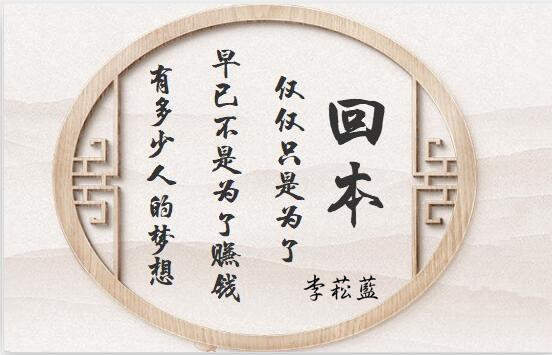 有多少人的梦想
早已不是为了赚钱
仅仅只是为了
回本
李菘蓝